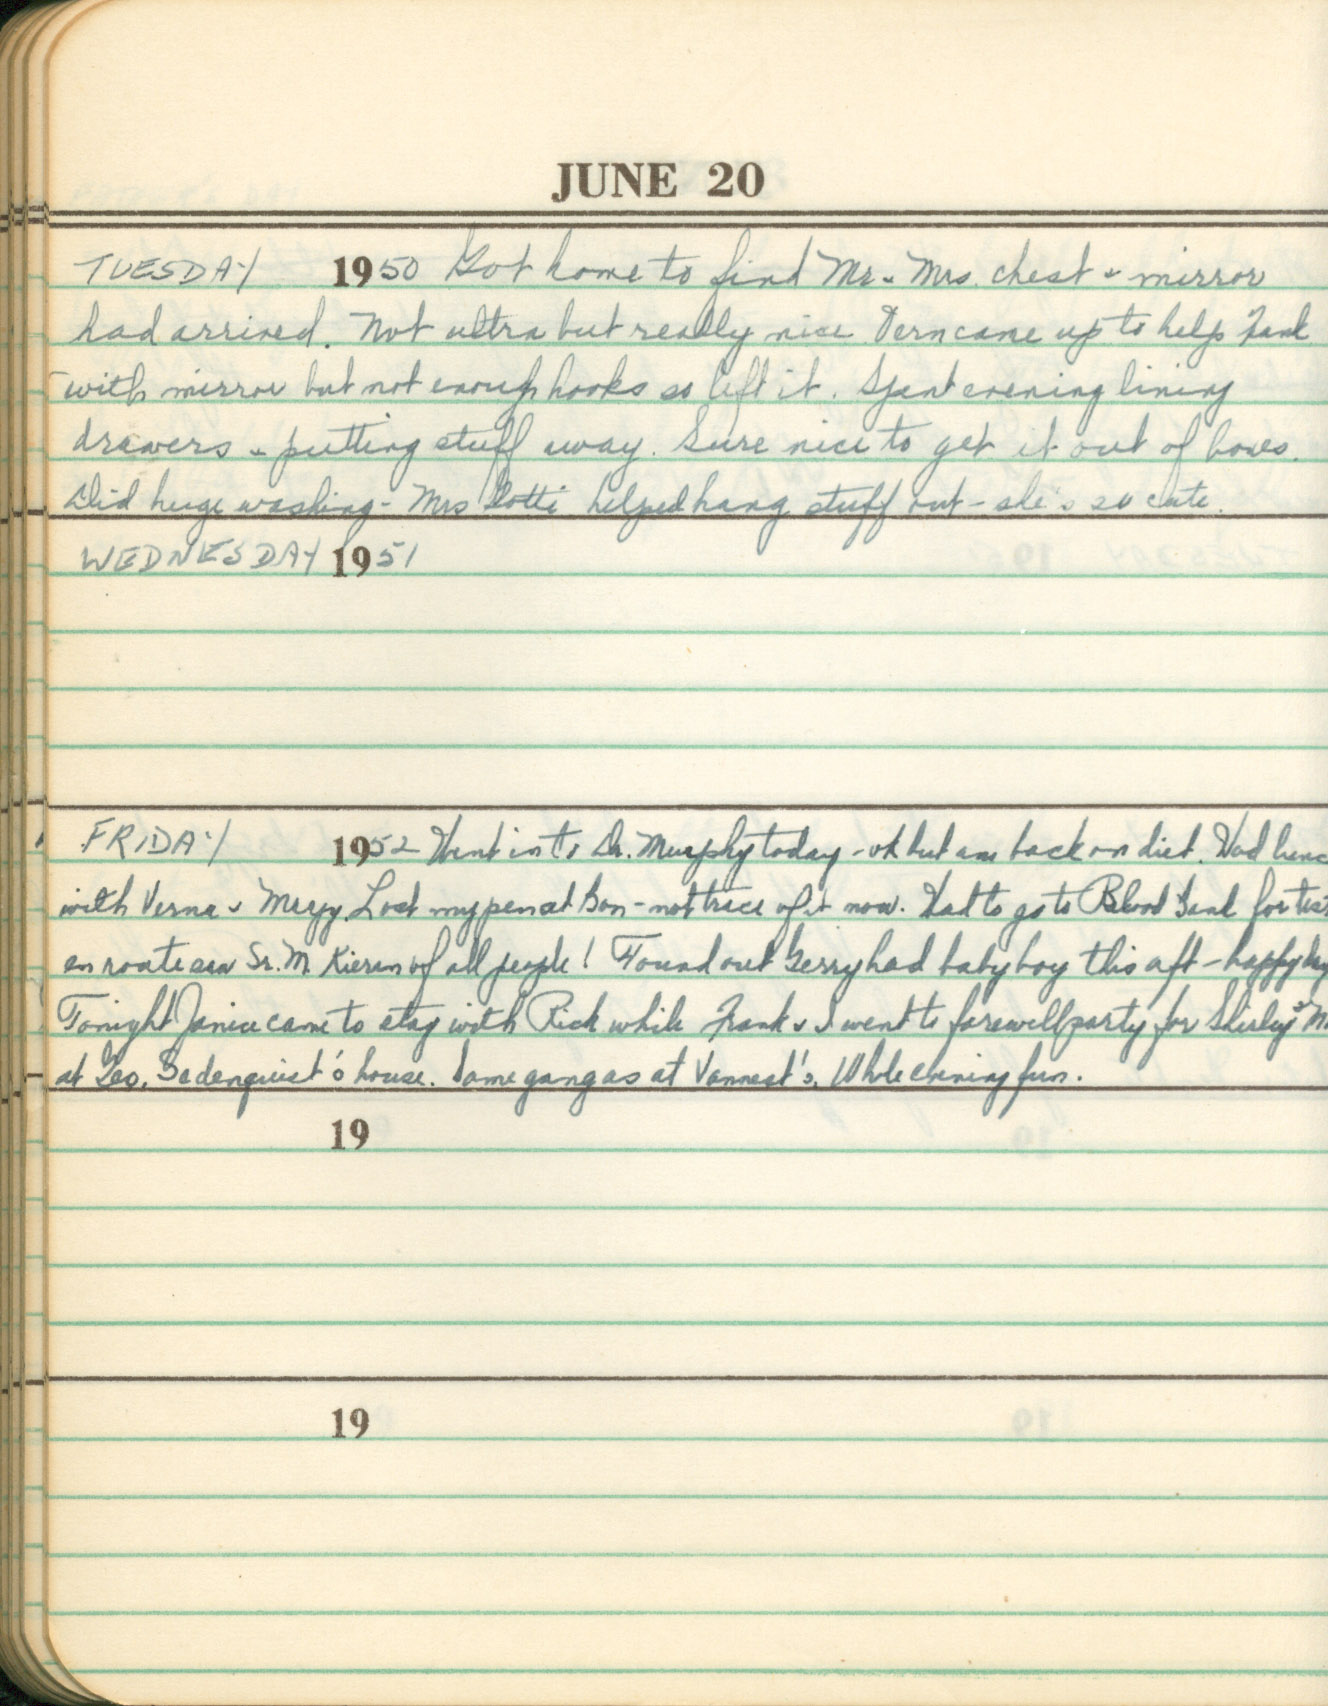 JUNE 20
TUESDAY 1950 Got home to find Mr & Mrs. chest & mirror
had arrived. Not ultra but really nice. Vern came up to help Frank
with mirror but not enough hooks so left it. Spent evening lining
drawers & putting stuff away. Sure nice to get it out of boxes.
Did huge washing - Mrs Gotti helped hang stuff out - she's so cute.
WEDNESDAY 1951
FRIDAY 1952 Went in to Dr. Murphy today - ok but am back on diet. Had lunc
with Verna & Lost my pen at Bon - not trace of it now. Had to go to Blood Bank for test
en route saw Sr. M. Kieran of all people! Found out Gerry had baby boy this aft - happy day
Tonight Janice came to stay with Rick while Frank & I went to farewell party for Shirley
at Geo. house. Same gang as at Vannest's. Whole evening fun.
19
19